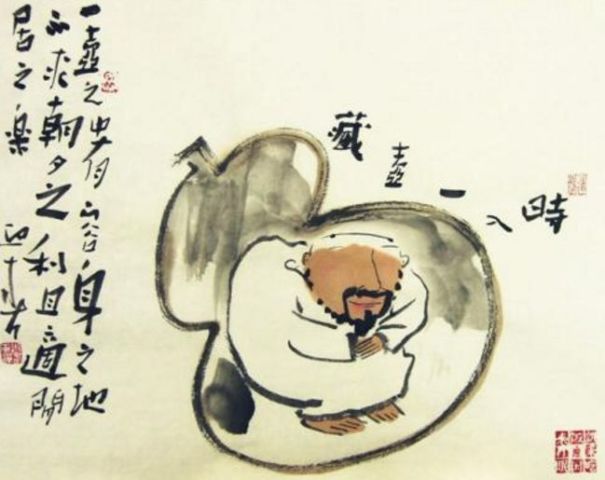 時入一壺藏
一壺之中有容身之地
不求朝夕之利且適閒
居之樂